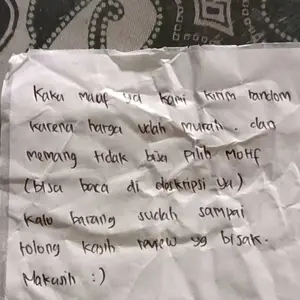 Kaka maaf ya kami kirim random
karena harga udah murah. dan
memang tidak bisa pilih motif
(bisa baca di deskripsi ya)
Kalo barang sudah sampai
tolong kasih review yg bisak.
Makasih :)